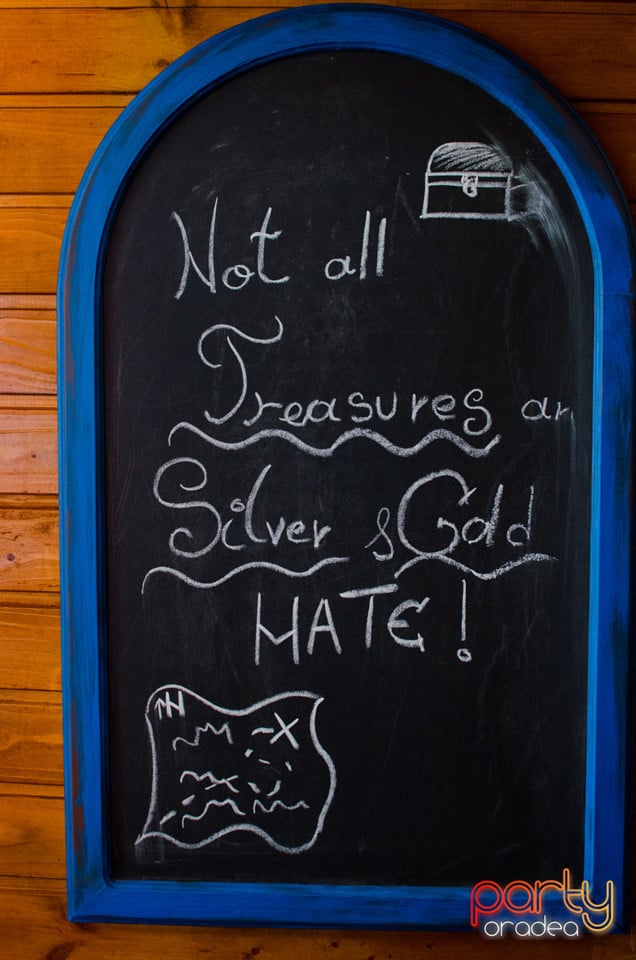 Not all
Treasures ar
Silver & Gold
MATE!
N
X
party
oradea